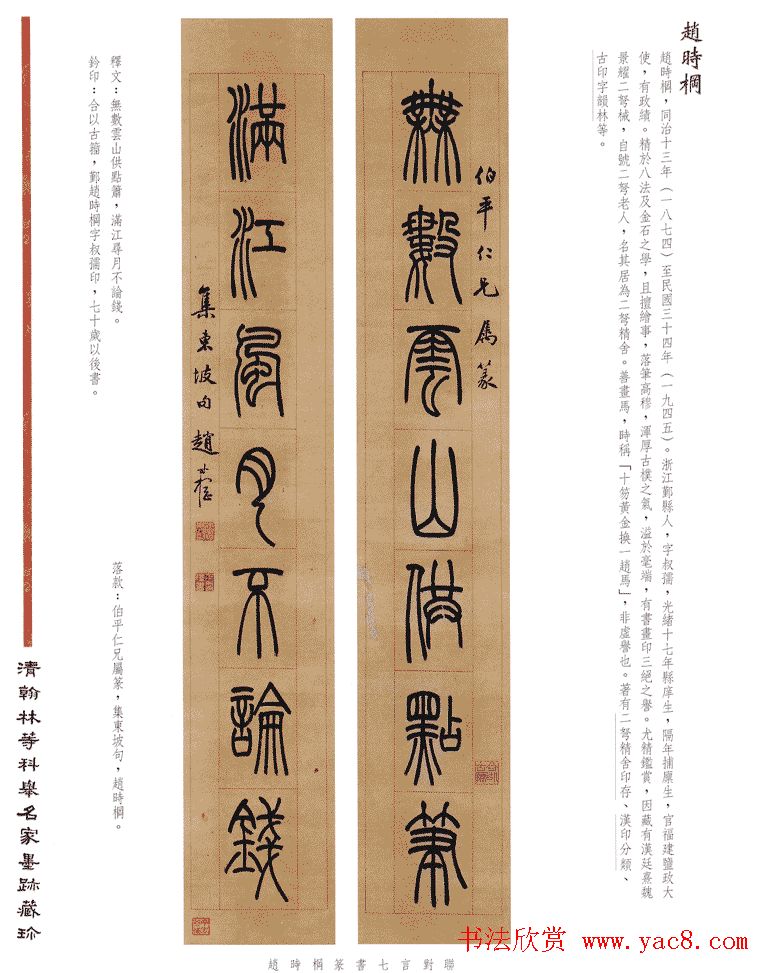 趙時棡
趙時棡，同治十三年（一八七四）至民國三十四年（一九四五）。浙江鄞縣人，字叔孺，光緒十七年縣庠生，隔年捕廩生，官福建鹽政大
使，有政績。精於八法及金石之學，且擅繪事，落筆高穆，渾厚古樸之氣，溢於毫端，有書畫印三絕之譽。尤精鑑賞，因藏有漢廷熹魏
景耀二弩械，自號二弩老人，名其居為二弩精舍。善畫馬，時稱「十笏黃金換一趙馬」，非虛譽也。著有二弩精舍印存、漢印分類、
古印字韻林等。
伯平仁兄屬篆
無數雲山供點筆
滿江風月不論錢
集東坡句 趙時棡
釋文：無數雲山供點簫，滿江尋月不論錢。
落款：伯平仁兄屬篆，集東坡句，趙時棡。
鈐印：合以古籀，鄞趙時棡字叔孺印，七十歲以後書。
清翰林等科舉名家墨跡藏珍
趙時棡篆書七言對聯
书法欣赏 www.yac8.com